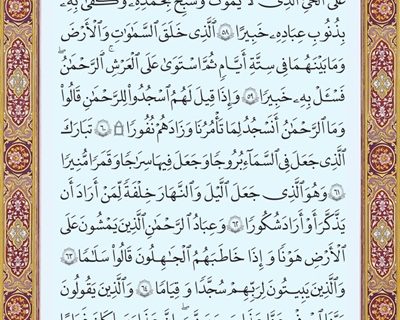 عَلَى ٱلْحَىِّ ٱلَّذِى لَا يَمُوتُ وَسَبِّحْ بِحَمْدِهِۦ ۚ وَكَفَىٰ بِهِۦ
بِذُنُوبِ عِبَادِهِۦ خَبِيرًا ﴿٥٨﴾ ٱلَّذِى خَلَقَ ٱلسَّمَٰوَٰتِ وَٱلْأَرْضَ
وَمَا بَيْنَهُمَا فِى سِتَّةِ أَيَّامٍ ثُمَّ ٱسْتَوَىٰ عَلَى ٱلْعَرْشِ ۚ ٱلرَّحْمَٰنُ
فَسْـَٔلْ بِهِۦ خَبِيرًا ﴿٥٩﴾ وَإِذَا قِيلَ لَهُمُ ٱسْجُدُوا۟ لِلرَّحْمَٰنِ قَالُوا۟
وَمَا ٱلرَّحْمَٰنُ أَنَسْجُدُ لِمَا تَأْمُرُنَا وَزَادَهُمْ نُفُورًا ۩ ﴿٦٠﴾ تَبَارَكَ
ٱلَّذِى جَعَلَ فِى ٱلسَّمَآءِ بُرُوجًا وَجَعَلَ فِيهَا سِرَٰجًا وَقَمَرًا مُّنِيرًا
﴿٦١﴾ وَهُوَ ٱلَّذِى جَعَلَ ٱلَّيْلَ وَٱلنَّهَارَ خِلْفَةً لِّمَنْ أَرَادَ أَن
يَذَّكَّرَ أَوْ أَرَادَ شُكُورًا ﴿٦٢﴾ وَعِبَادُ ٱلرَّحْمَٰنِ ٱلَّذِينَ يَمْشُونَ عَلَى
ٱلْأَرْضِ هَوْنًا وَإِذَا خَاطَبَهُمُ ٱلْجَٰهِلُونَ قَالُوا۟ سَلَٰمًا ﴿٦٣﴾
وَٱلَّذِينَ يَبِيتُونَ لِرَبِّهِمْ سُجَّدًا وَقِيَٰمًا ﴿٦٤﴾ وَٱلَّذِينَ يَقُولُونَ